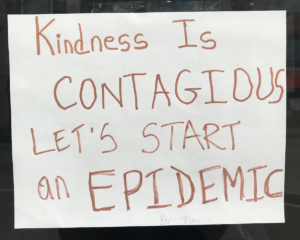 Kindness Is
CONTAGIOUS
LET'S START
an EPIDEMIC